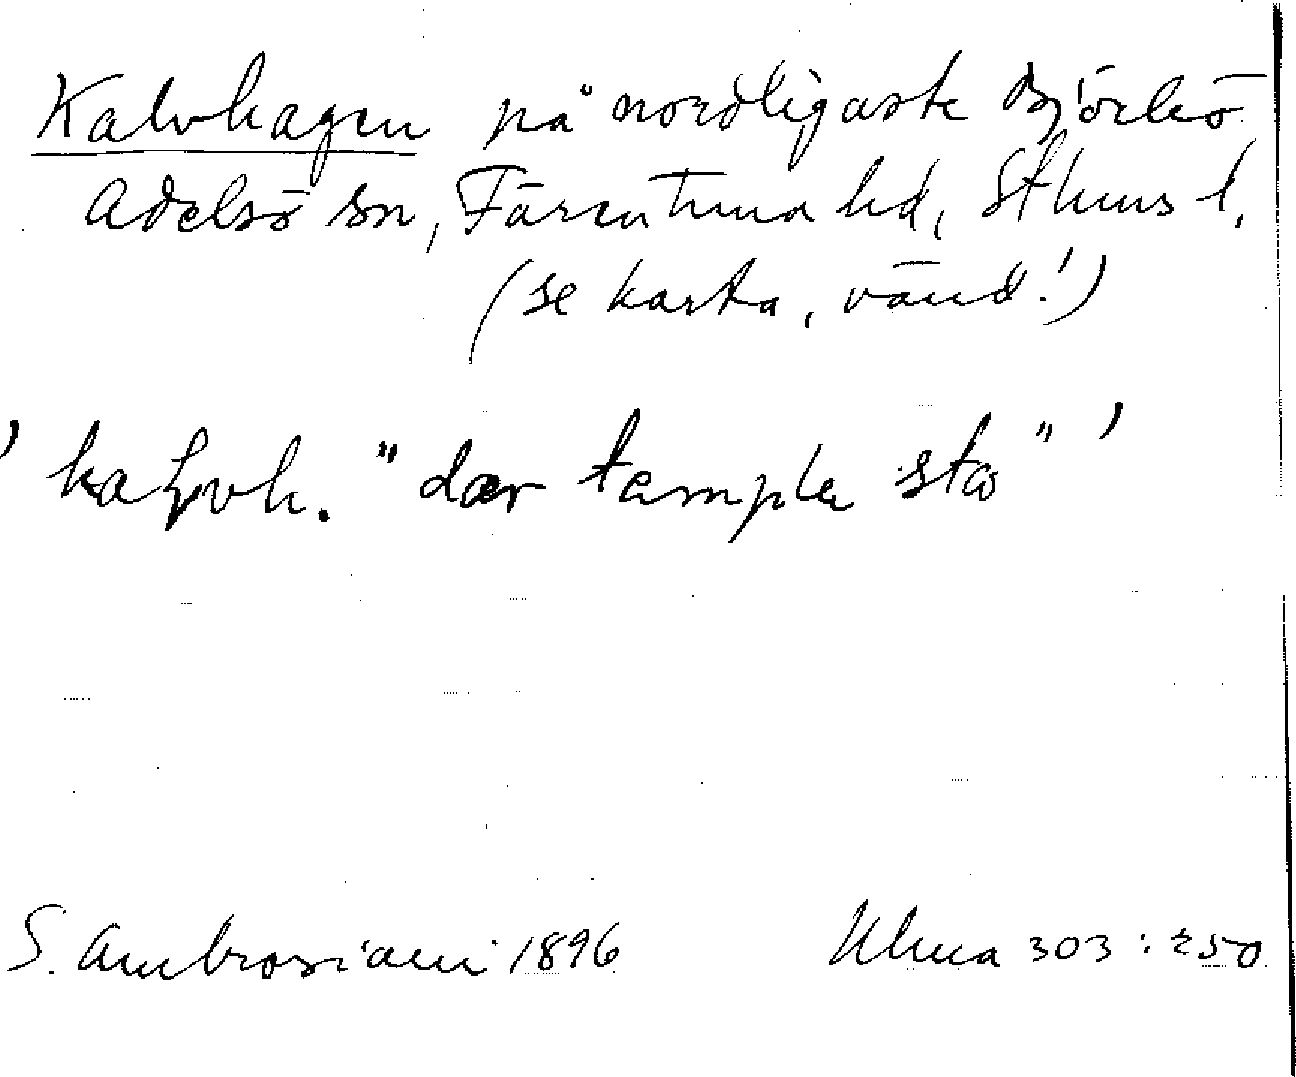 Kalvhagen på nordligaste Björkö
Adelsö sn, Färentuna hd, Sthms l.
(se karta, vänd!)
' kaļvh. "dær templa sto" '
S. Ambrosiani 1896 Uluma 303:250